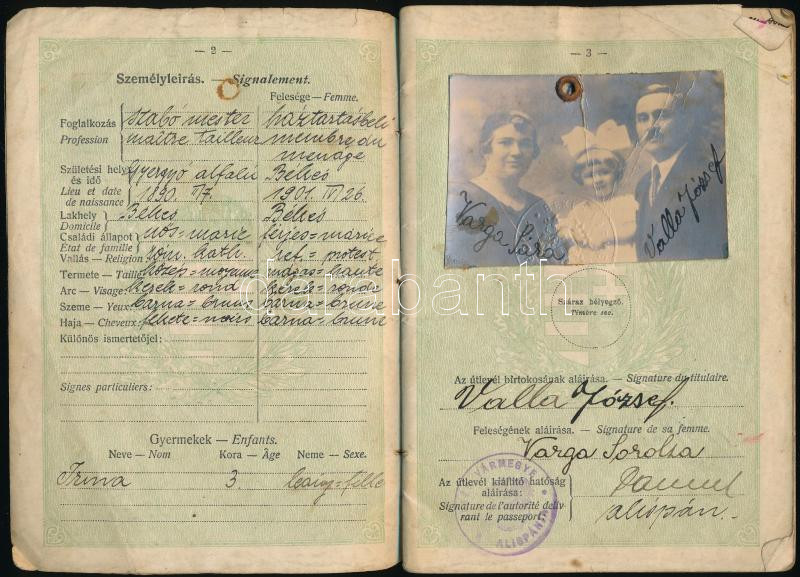 — 2 —
Személyleírás. — Signalement.
Felesége — Femme.
Foglalkozás szabó mester háztartásbeli
Profession maître tailleur membre du
menage
Születési hely Gyergyó alfalu Békés
és idő
Lieu et date 1890. 1901. IV 26.
de naissance
Lakhely Békés Békés
Domicile
Családi állapot nős = marié férjes = mariée
État de famille
Vallás — Religion róm. kath. ref. = protest
Termete — Taille közép = moyenne magas = haute
Arc — Visage kerek = rond kerek = ronde
Szeme — Yeux barna = bruns barna = brune
Haja — Cheveux fekete = noirs barna = brune
Különös ismertetőjel:
Signes particuliers:
Gyermekek — Enfants.
Neve — Nom Kora — Âge Neme — Sexe.
Irma 3. leány = fille
— 3 —
Varga Sára
Valla József
Száraz bélyegző.
Timbre sec.
Az útlevél birtokosának aláírása. — Signature du titulaire.
Valla József.
Feleségének aláírása. — Signature de sa femme.
Varga Sarolta
Az útlevél kiállító hatóság
aláírása:
Signature de l'autorité deliv
rant le passeport:
alispán.
VÁRMEGYE
ALISPÁNJA
darabanth